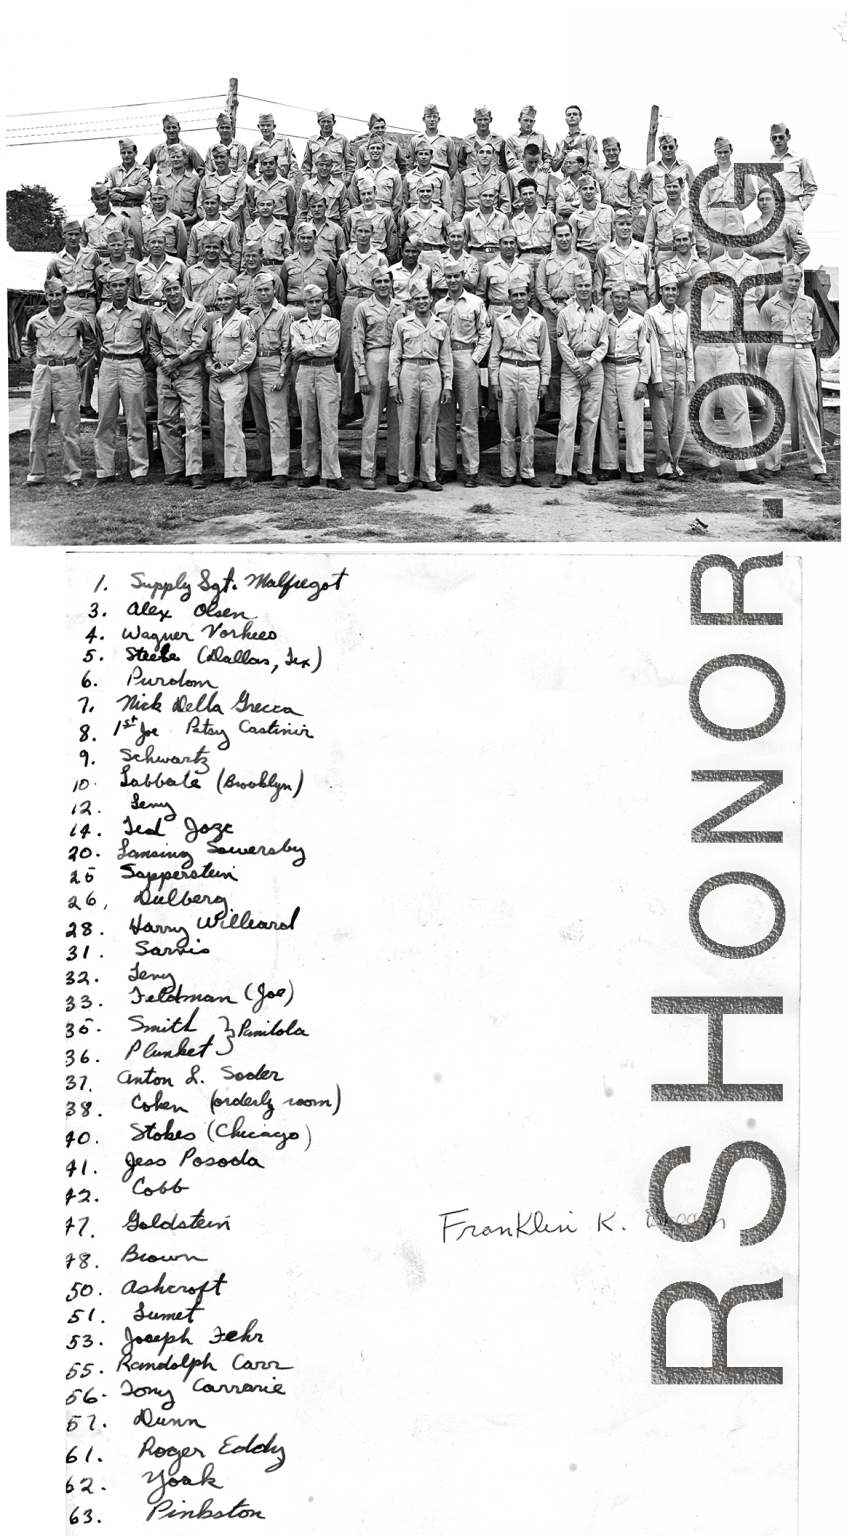 1. Supply Sgt. Malfregot
3. Alex Olsen
4. Wagner Vorhees
5. Steele (Dallas, Tex)
6. Purdom
7. Nick Della Grecca
8. 1st Joe Patsy Castinir
9. Schwartz
10. Labbate (Brooklyn)
12.
14. Ted Joze
20. Lansing Sowersby
25 Sapperstein
26, Dulberg
28. Harry Williard
31. Sarvis
32.
33. Feldman (Joe)
35. Smith
36. Plunket
37. Anton L. Soder
38. Cohen (orderly room)
40. Stokes (Chicago)
41. Jess Posoda
42. Cobb
47. Goldstein
Franklin K.
48. Brown
50. Ashcroft
51. Lumet
53. Joseph Fehr
55. Randolph Carr
56. Tony Carrarie
57. Dunn
61. Roger Eddy
62. York
63. Pinkston
RSHONOR.ORG